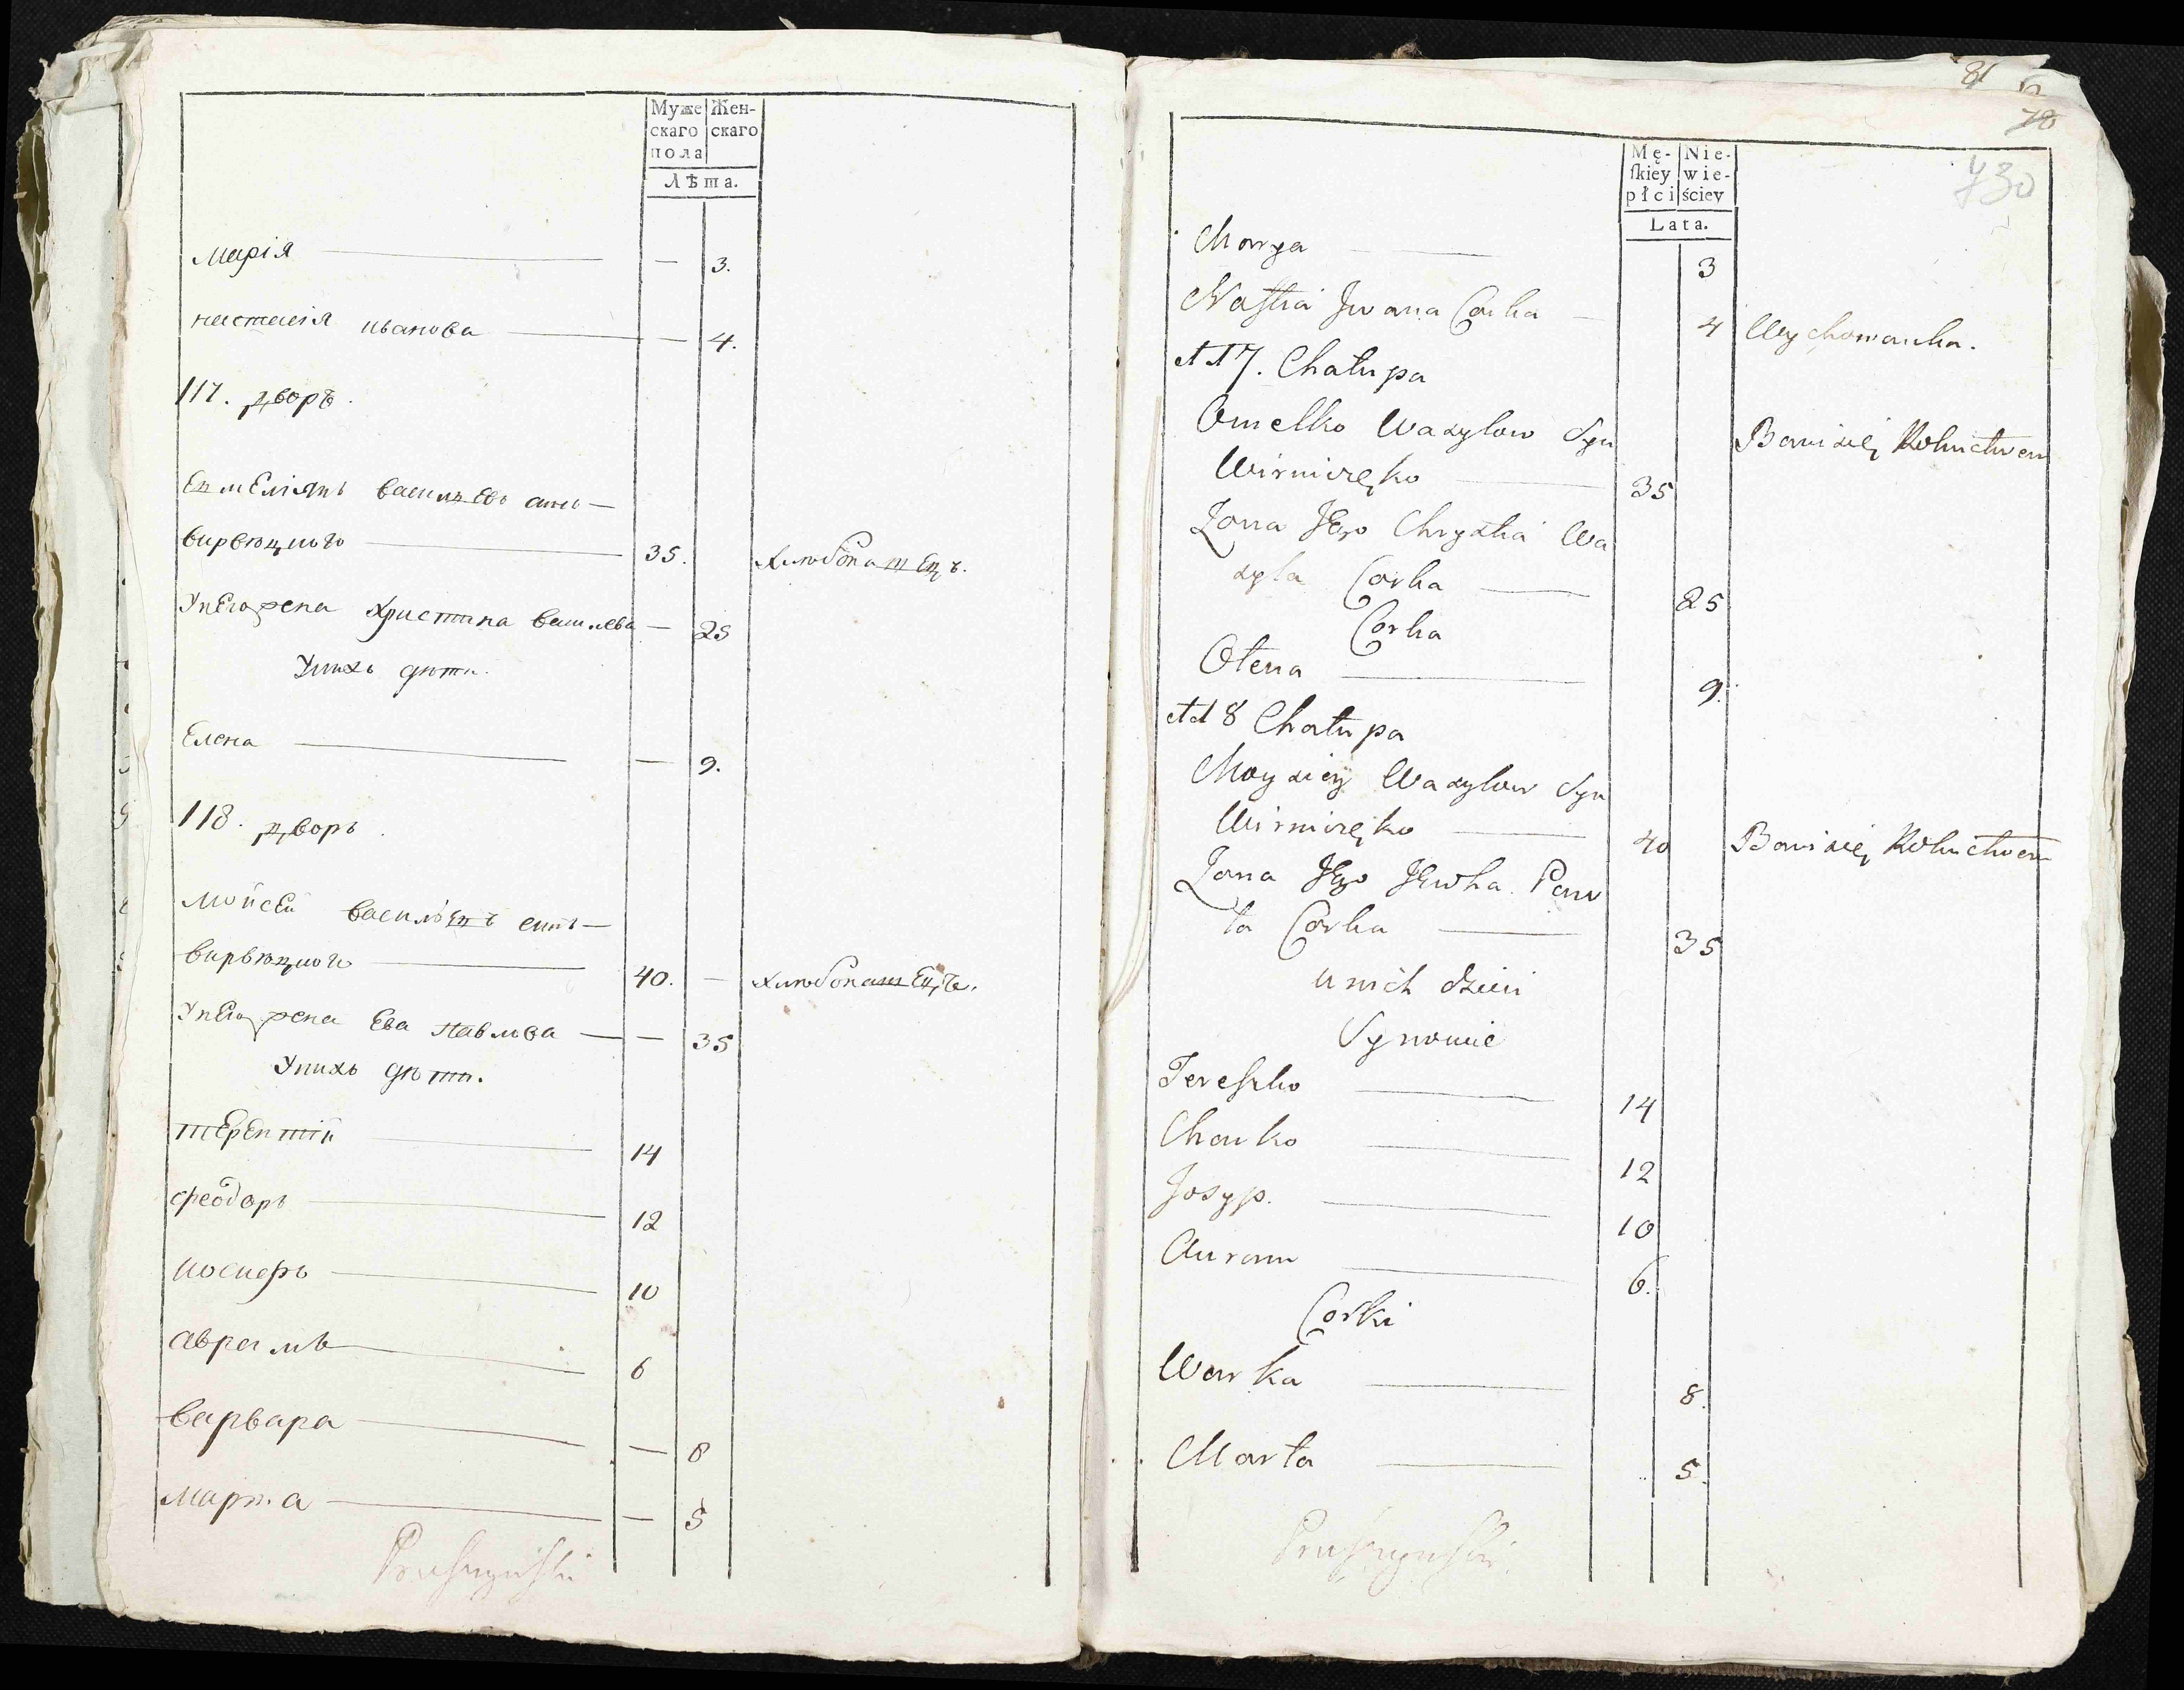 Муже Жен-
скаго скаго
пола
Лѣта.
Марія — 3.
настасія иванова — 4.
117. дворъ.
Емеліянъ васильевъ сынъ
35. хлѣбопашецъ.
У него жена христина васильева — 25
У нихъ дѣти.
Елена — 9.
118. дворъ.
Мойсей васильевъ сынъ
40. — хлѣбопашецъ.
У него жена Ева павлова — 35
У нихъ дѣти.
терентій 14
феодоръ 12
иосифъ 10
аврамъ 6
варвара — 8
марта — 5
81
78
730
Mę- Nie-
ſkiey wie-
płci ściey
Lata.
Marya 3
Naſtia Jwana Corka 4 Wychowanka.
117. Chałupa
Omelko Wazylow Syn Bawi się Rolnictwem
35
Zona JEgo Chrystia Wa
zyla Corka 25
Corka
Olena 9.
118 Chałupa
Moyziey Wazylow Syn
40 Bawi się Rolnictwem
Zona JEgo JEwka Paw
ła Corka 35
u nich dzieci
Synowie
Tereſzko 14
Charko 12
Josyp. 10
Auram 6.
Corki
Warka 8.
Marta 5.